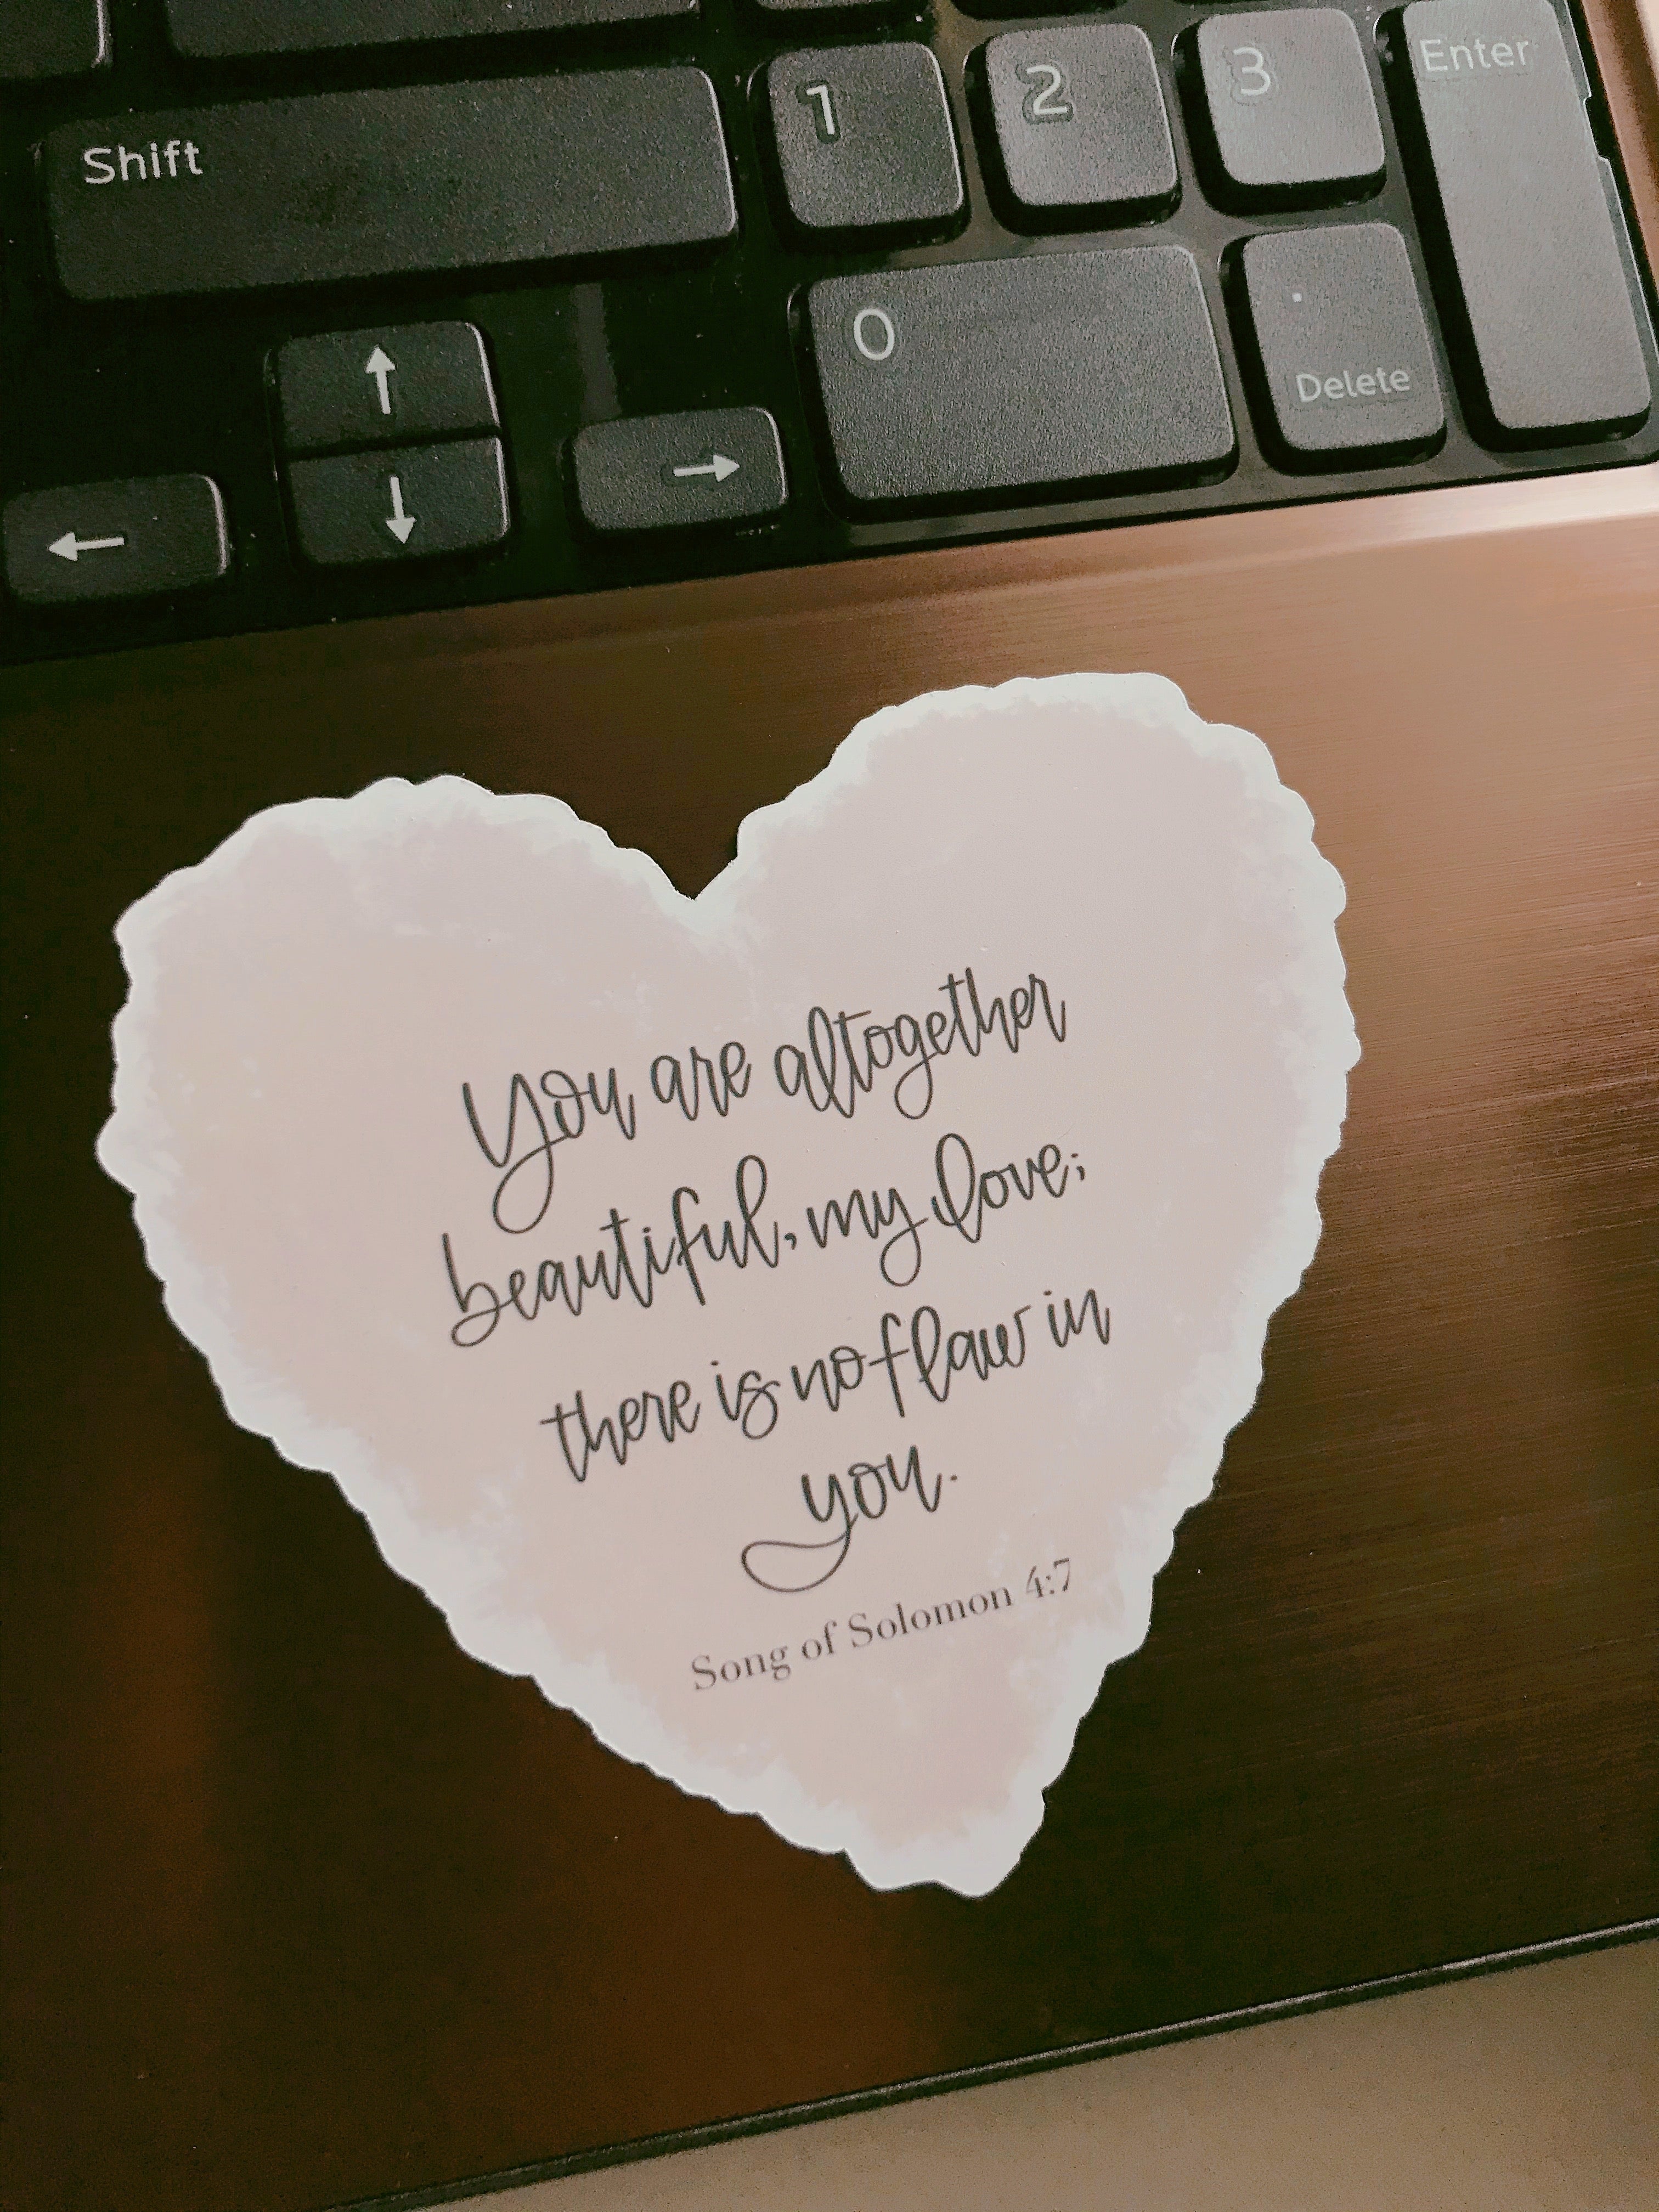 Shift
1
2
3
Enter
↑
0
.
Delete
←
↓
→
You are altogether
beautiful, my love;
there is no flaw in
you.
Song of Solomon 4:7